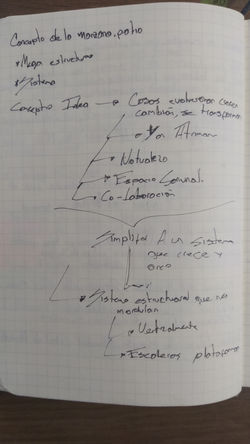 Concepto de la manzana, patio
• Mega estructura
• Sistema
Concepto Idea → Cosas evolucionan crecen
cambian, se transforman
Naturaleza
• Espacio Comunal.
• Co-laboración
Simplificar A un sistema
que crece y
• Sistema estructural que nos
modulan
• Verticalmente
• Escaleras plataformas